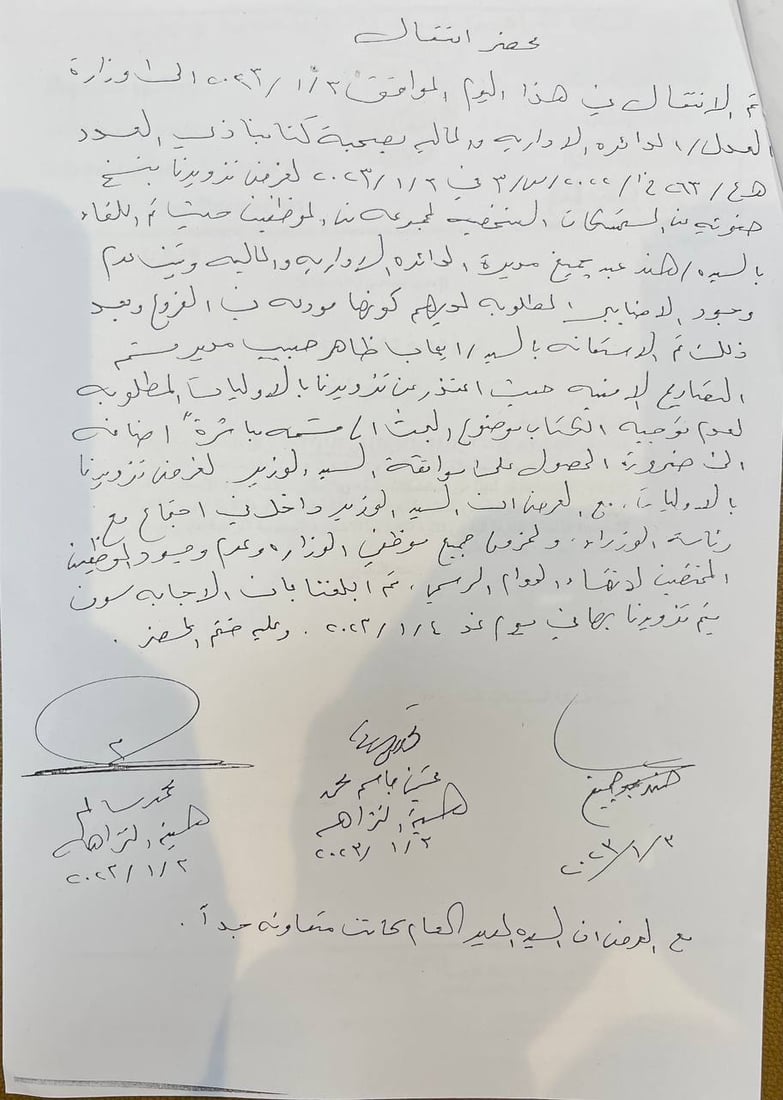 محضر انتقال
تم الانتقال في هذا اليوم الموافق ٢٠٢٣/١/٣ الى وزارة
العدل/ الدائره الاداريه والماليه بصحبة كتابنا ذي العدد
٢٦٣/خ/٢٠٢٢/س/٣ في ٢٠٢٣/١/٢ لغرض تزويدنا بنسخ
ضوئيه من المستمسكات الشخصيه لمجموعه من الموظفين حيث تم اللقاء
بالسيده/ هند عبد مديرة الدائره الاداريه والماليه وتبين عدم
وجود الاضابير المطلوبه لديهم كونها مودعه في الفروع وبعد
ذلك تم الاستعانه بالسيد/ ايهاب ظاهر حبيب مدير قسم
التصاريح الامنيه حيث اعتذر عن تزويدنا بالاوليات المطلوبه
لعدم توجيه الكتاب موضوع البحث الى قسمه مباشرة" اضافه
الى ضرورة الحصول على موافقة السيد الوزير لغرض تزويدنا
بالاوليات. مع العرض ان السيد الوزير داخل في اجتماع مع
رئاسة الوزراء. ولخروج جميع موظفي الوزاره وعدم وجود الموظفين
المختصين لانتهاء الدوام الرسمي. تم ابلغنا بان الاجابه سوف
يتم تزويدنا بها في يوم غد ٢٠٢٣/١/٤. وعليه ختم المحضر.
هند عبد
٢٠٢٣/١/٣
جاسم محمد
هيئة النزاهه
٢٠٢٣/١/٣
محمد سالم
هيئة النزاهه
٢٠٢٣/١/٣
مع العرض ان السيده المدير العام كانت متعاونه جداً.